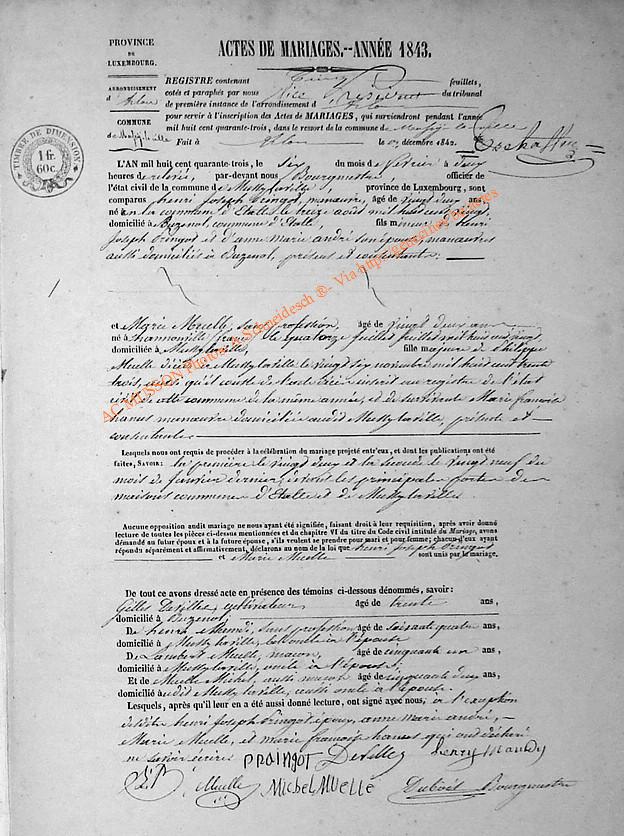 PROVINCE
DE
LUXEMBOURG.
ARRONDISSEMENT
d'Arlon
COMMUNE
de Mussy-la-ville
TIMBRE DE DIMENSION
1 fr.
60c.
ACTES DE MARIAGES.--ANNÉE 1843.
REGISTRE contenant feuillets,
cotés et paraphés par nous Vice Président du tribunal
de première instance de l'arrondissement d'Arlon
pour servir à l'inscription des Actes de MARIAGES, qui surviendront pendant l'année
mil huit cent quarante-trois, dans le ressort de la commune de Mussy la ville
Fait à Arlon le décembre 1842.
L'AN mil huit cent quarante-trois, le six du mois de février à deux
heures de relevée, par-devant nous Bourgmestre officier de
l'état civil de la commune de Mussy la ville, province de Luxembourg, sont
comparus henri Joseph Pringot, manœuvre, âgé de vingt deux ans,
né en la commune d'Etalle le treize août mil huit cent vingt,
domicilié à Buzenol, commune d'Etalle, fils mineur d'henri
Joseph Pringot et d'anne marie andré son épouse, manœuvres
aussi domiciliés à Buzenol, présents et consentants;
et Marie Muelle, sans profession, âgé de vingt deux ans
né à france le quatorze juillet mil huit cent vingt,
domiciliée à Mussy la ville, fille majeure de Philippe
Muelle décédé à Mussy la ville le vingt six novembre mil huit cent trente
trois, ainsi qu'il conste de l'acte inscrit au registre de l'état
civil de cette commune de la même année, et de survivante Marie françoise
hames manœuvre domiciliée audit Mussy la ville, présente et
consentante
Lesquels nous ont requis de procéder à la célébration du mariage projeté entr'eux, et dont les publications ont été
faites, Savoir: la première le vingt deux et la seconde le vingt neuf du
mois de janvier dernier, devant les principales portes des
maisons communes d'Etalle et de Mussy la ville
Aucune opposition audit mariage ne nous ayant été signifiée, faisant droit à leur requisition, après avoir donné
lecture de toutes les pièces ci-dessus mentionnées et du chapitre VI du titre du Code civil intitulé du Mariage, avons
démandé au futur époux et à la future épouse, s'ils veulent se prendre pour mari et pour femme; chacun d'eux ayant
répondu séparément et affirmativement, déclarons au nom de la loi que henri Joseph Pringot
et Marie Muelle sont unis par le mariage.
De tout ce avons dressé acte en présence des témoins ci-dessous dénommés, savoir:
Gilles Deville, cultivateur âgé de trente ans,
domicilié à Buzenol
De henri sans profession âgé de soixante quatre ans,
domicilié à Mussy la ville, à l'épouse
De Lambert Muelle, maçon, âgé de cinquante un ans,
domicilié à Mussy la ville, oncle à l'épouse;
Et de Muelle Michel, aussi maçon âgé de cinquante deux ans
domicilié audit Mussy la ville, aussi oncle à l'épouse.
Lesquels, après qu'il leur en a été aussi donné lecture, ont signé avec nous, à l'exception
desdits henri Joseph Pringot époux, anne marie andré,
Marie Muelle, et marie françoise hames qui ont déclaré
ne savoir écrire.
PRAINGOT Deville henry
Muelle MichelMUELLE Bourgmestre
AC MUSSON Photos A Schneidesch ®- Via http: